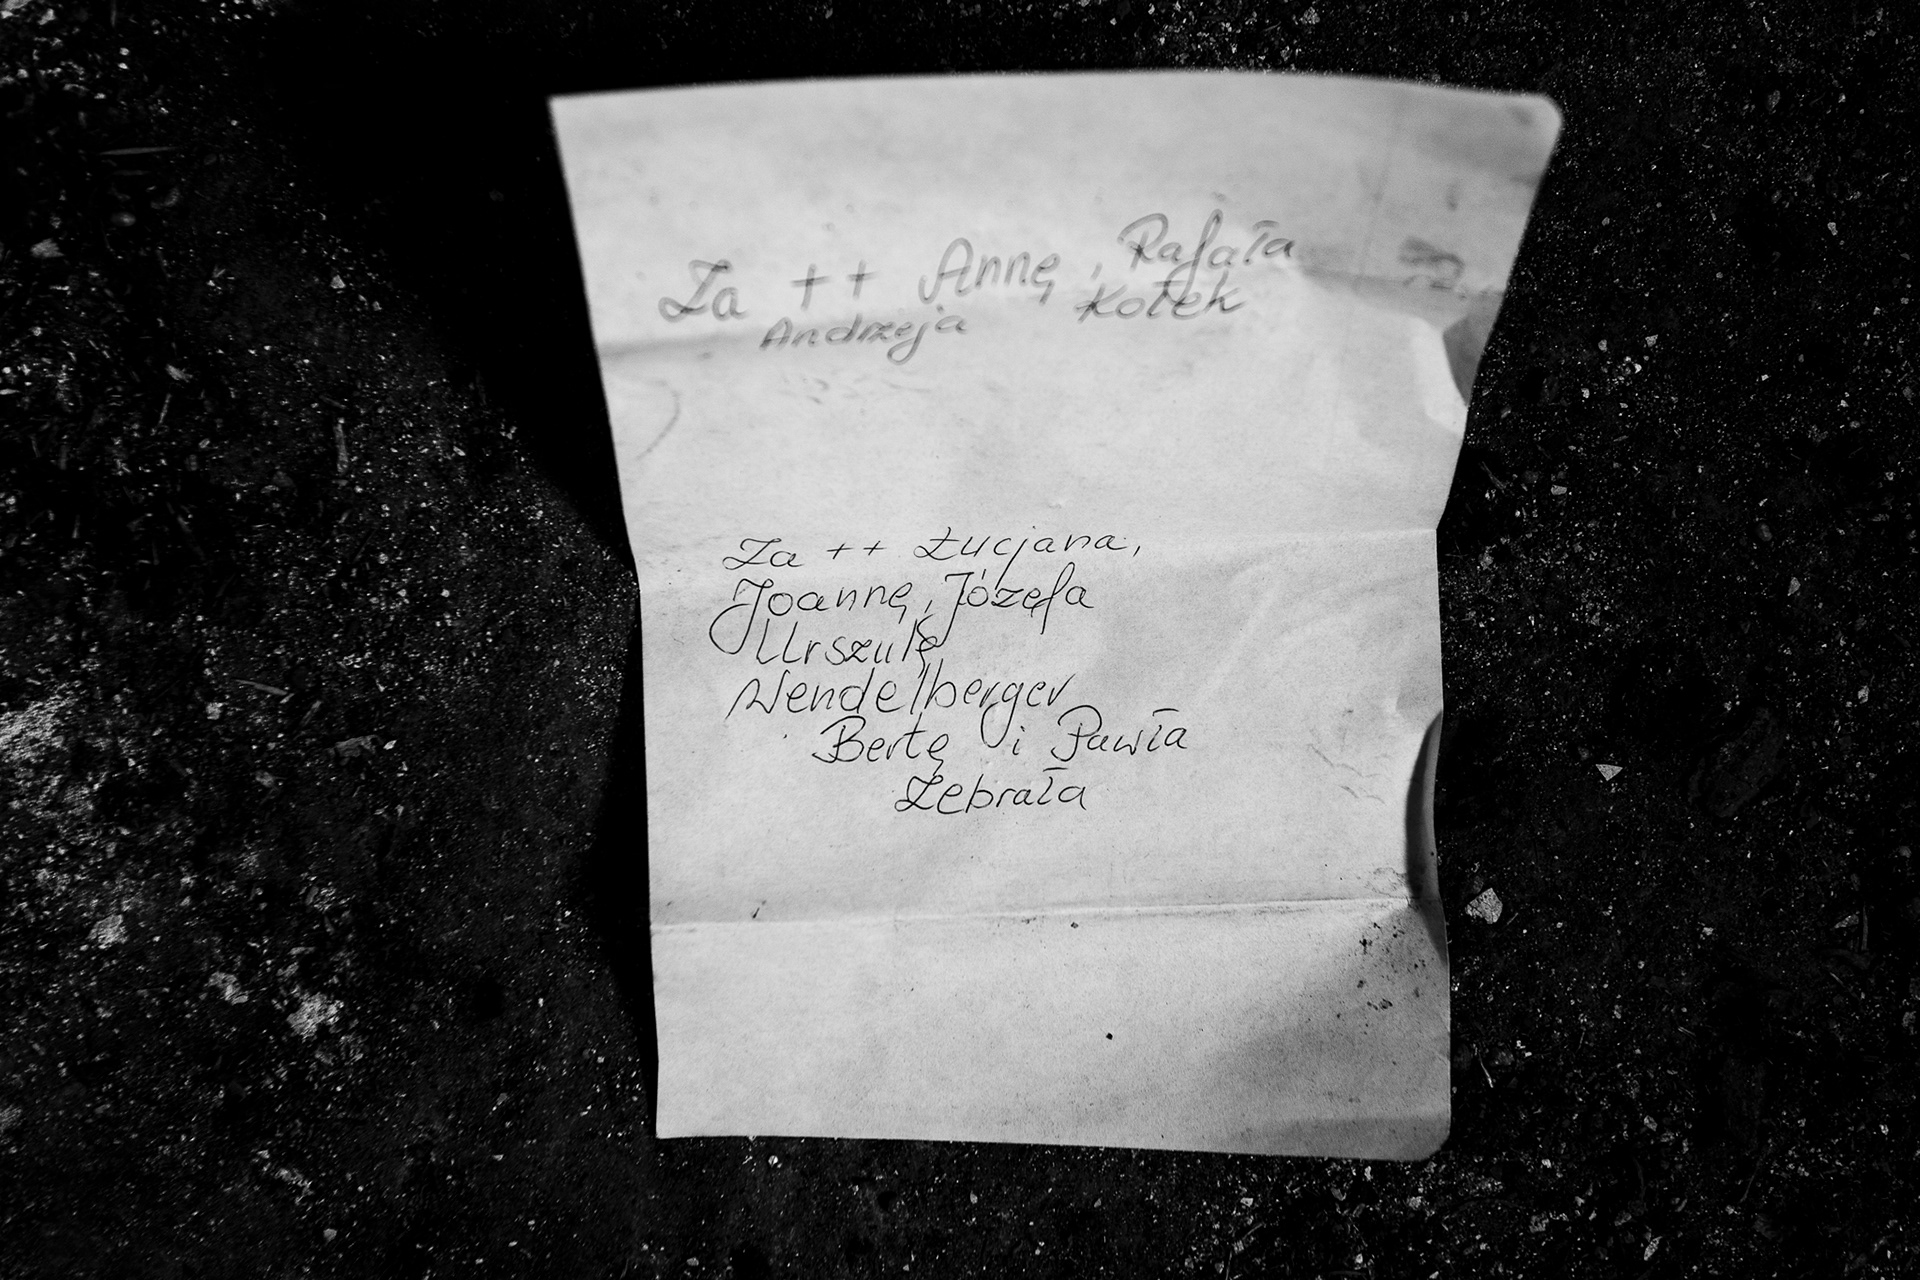 Za ++ Annę, Rafała
Andrzeja Kołek
Za ++ Łucjana,
Joannę, Józefa
Urszulę
Wendelberger
Bertę i Pawła
Zebrała